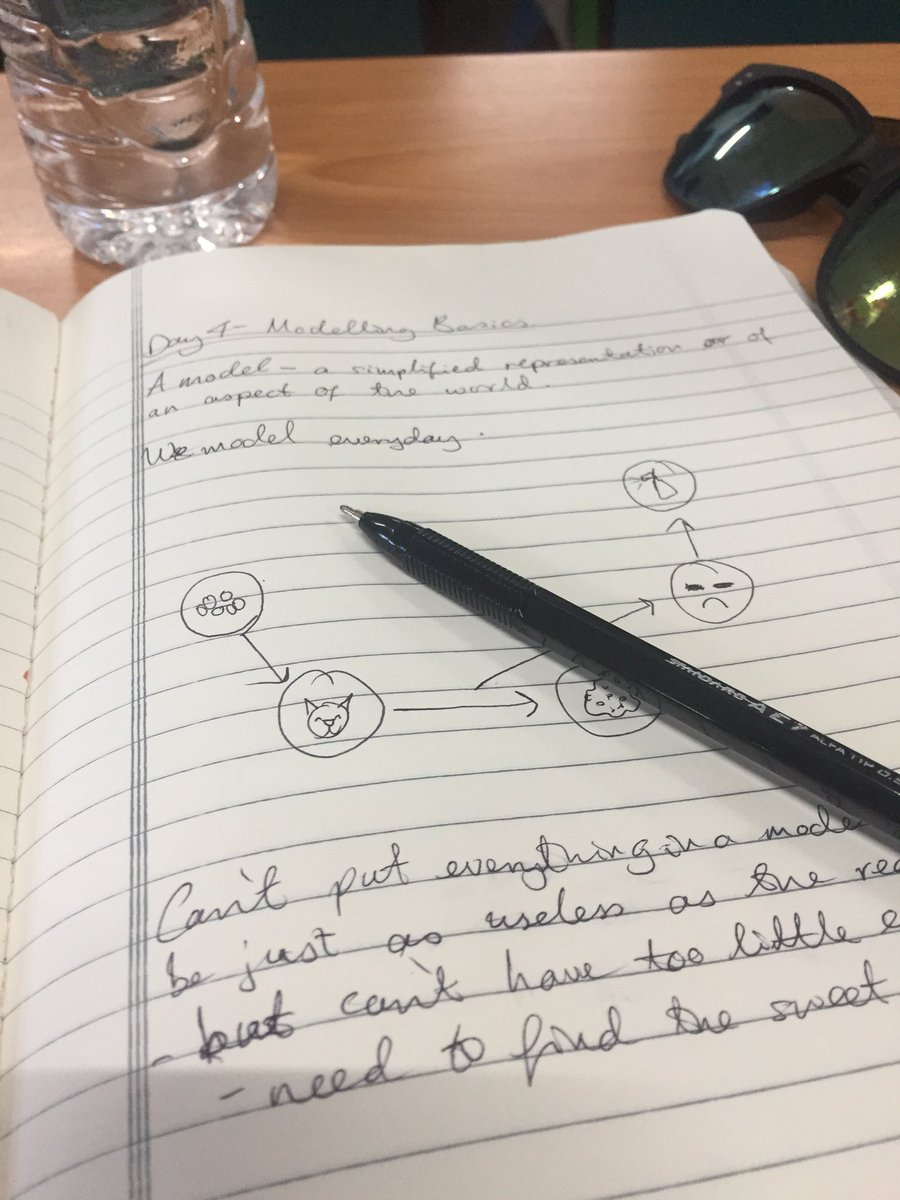 Day 4 - Modelling Basics
A model - a simplified representation or of
an aspect of the world.
We model everyday.
STANDARD AE7 ALFA TIP 0.5
Can't put everything in a mode
be just as useless as the rea
- but can't have too little e
- need to find the sweet